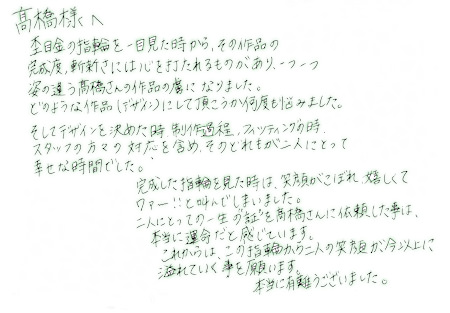 髙橋様へ
杢目金の指輪を一目見た時から、その作品の
完成度、斬新さには心を打たれるものがあり、一つ一つ
姿の違う髙橋さんの作品の虜になりました。
どのような作品(デザイン)にして頂こうか何度も悩みました。
そしてデザインを決めた時、制作過程、フィッティングの時、
スタッフの方々の対応を含め、そのどれもが二人にとって
幸せな時間でした。
完成した指輪を見た時は、笑顔がこぼれ、嬉しくて
ワァー!!と叫んでしまいました。
二人にとっての一生の"証"を髙橋さんに依頼した事は、
本当に運命だと感じています。
これからは、この指輪から二人の笑顔が今以上に
溢れていく事を願います。
本当に有難うございました。